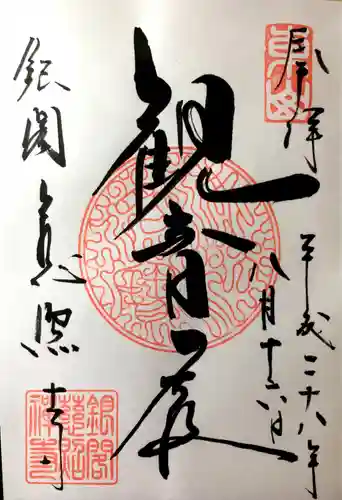 奉拝
平成二十八年
八月十六日
観音殿
銀閣慈照寺
銀閣
慈照
禅寺